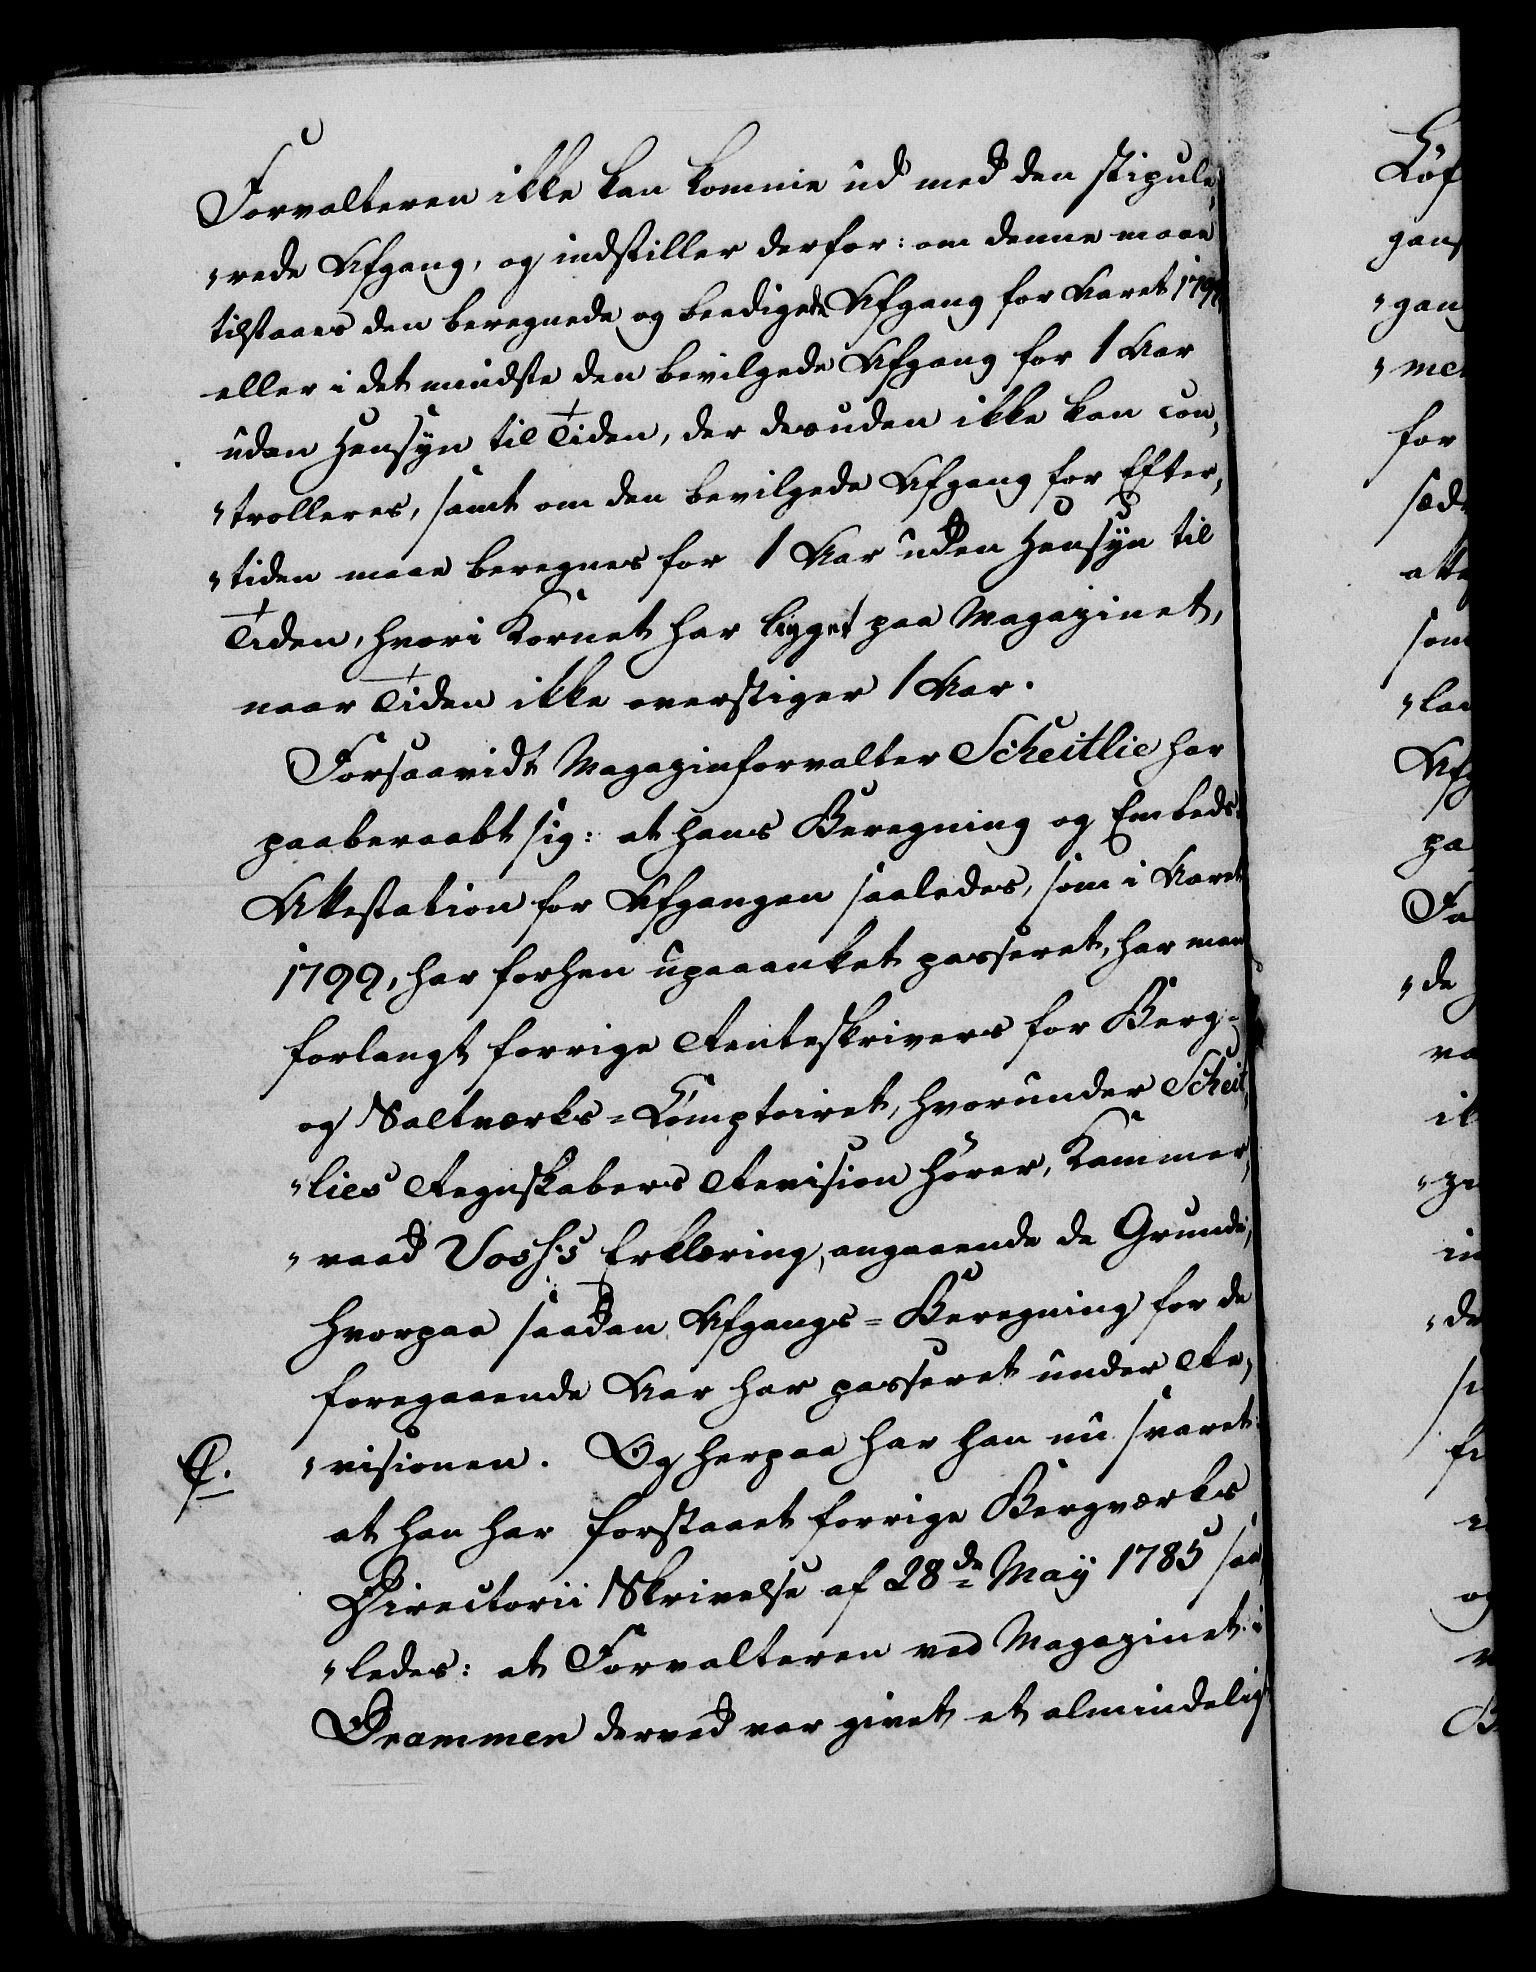 Forvalteren ikke kan komme ud med den stipule„
„rede Afgang, og indstiller derfor: om denne maae
tilstaaes den beregnede og beedigede Afgang for Aaret 1799,
eller i det mindste den bevilgede Afgang for 1 Aar
uden Hensyn til Tiden, der desuden ikke kan con„
„trolleres, samt om den bevilgede Afgang for Efter„
„tiden maae beregnes for 1 Aar uden Hensyn til
Tiden, hvori Kornet har ligget paa Magazinet,
naar Tiden ikke overstiger 1 Aar.
Forsaavidt Magazinforvalter Scheitlie har
paaberaabt sig: at hans Beregning og Embeds-
Attestation for Afgangen saaledes, som i Aaret
1799, har forhen upaaanket passeret, har man
forlangt forrige Renteskrivers for Berg-
og Saltværks-Comptoiret, hvorunder Scheit„
„lies Regnskabers Revision hörer, Kammer„
„raad Voss's Erklæring, angaaende de Grunde,
hvorpaa saadan Afgangs-Beregning for de
foregaaende Aar har passeret under Re„
„visionen. Og herpaa har han nu svaret:
at han har forstaaet forrige Bergværks
Directorii Skrivelse af 28de May 1785 saa„
„ledes: at Forvalteren ved Magazinet i
Drammen derved var givet et almindeligt